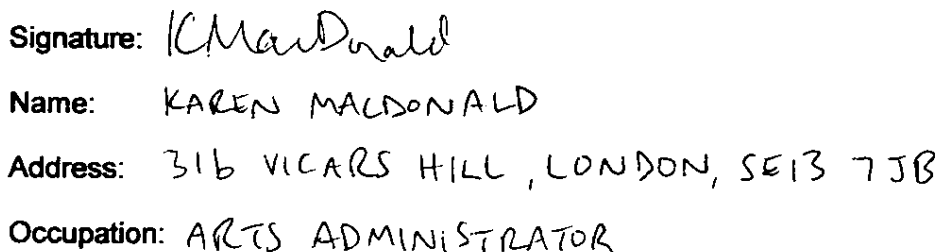 Signature: KMacDonald
Name: KAREN MACDONALD
Address: 31b VICARS HILL, LONDON, SE13 7JB
Occupation: ARTS ADMINISTRATOR